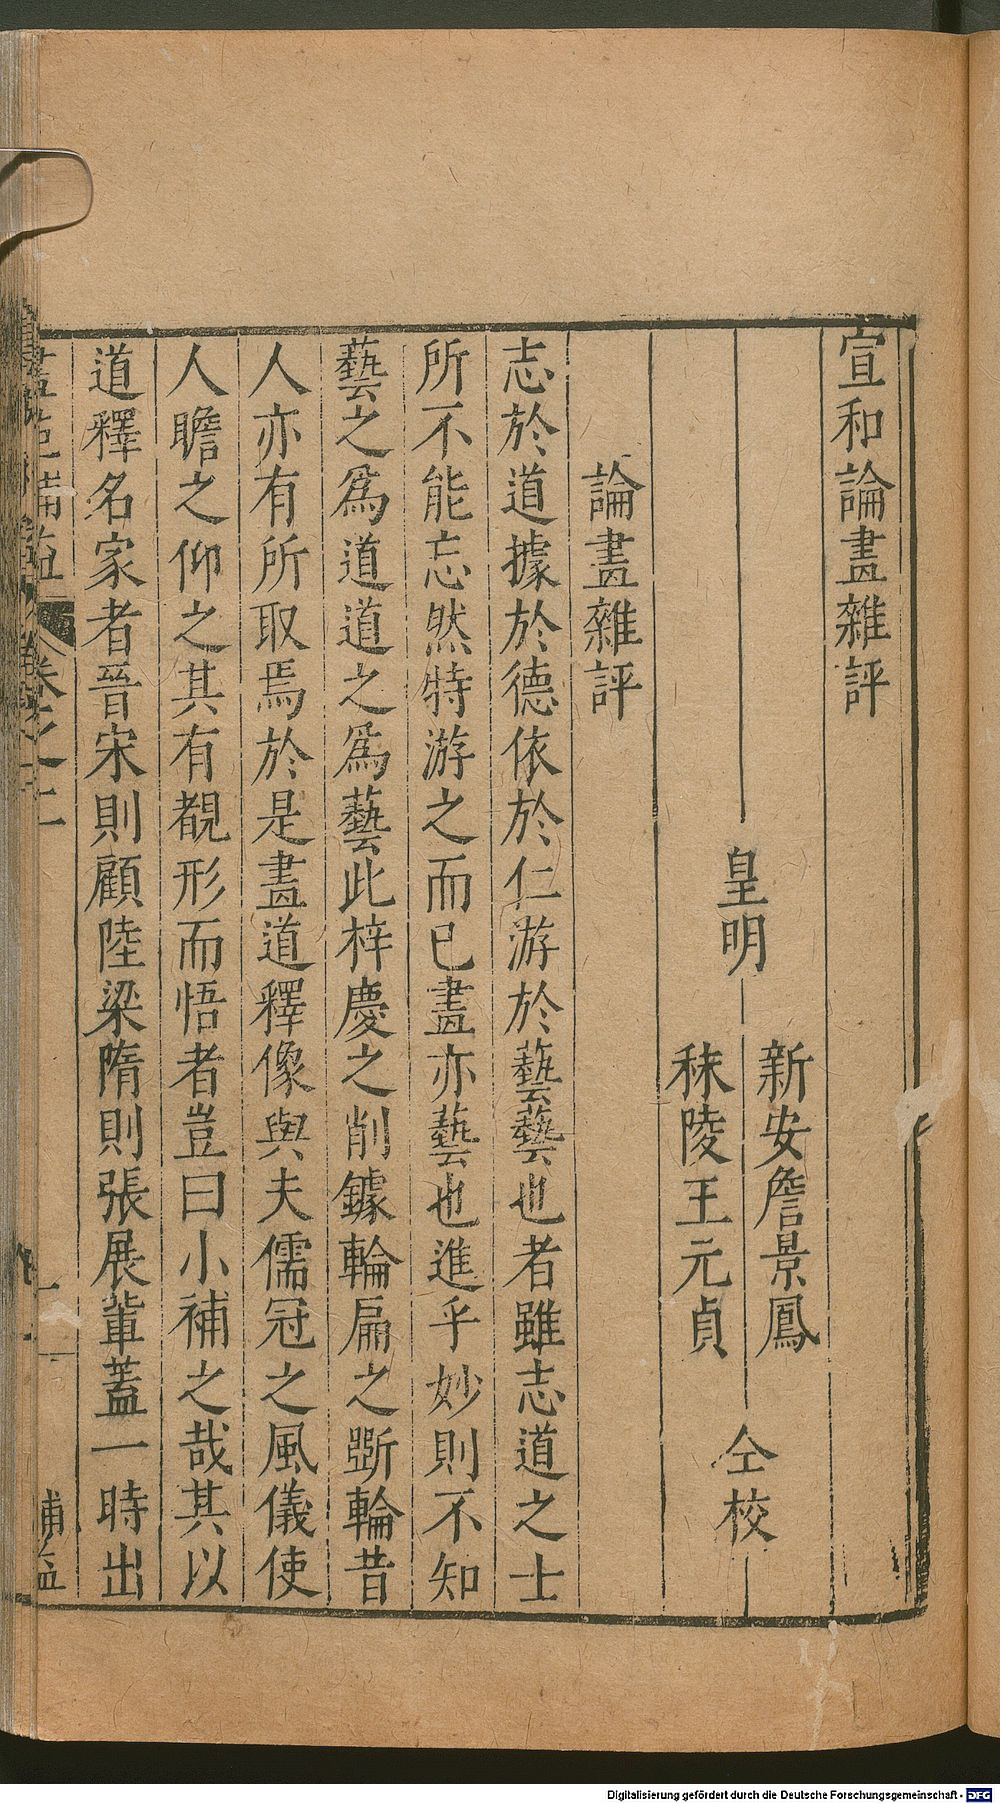 宣和論畫雜評
皇明
新安詹景鳳
秣陵王元貞
仝校
論畫雜評
志於道據於德依於仁游於藝藝也者雖志道之士
所不能忘然特游之而已畫亦藝也進乎妙則不知
藝之爲道道之爲藝此梓慶之削鐻輪扁之斲輪昔
人亦有所取焉於是畫道釋像與夫儒冠之風儀使
人瞻之仰之其有覩形而悟者豈曰小補之哉其以
道釋名家者晉宋則顧陸梁隋則張展輩蓋一時出
畫苑補益
卷之一
補益
Digitalisierung gefördert durch die Deutsche Forschungsgemeinschaft - DFG